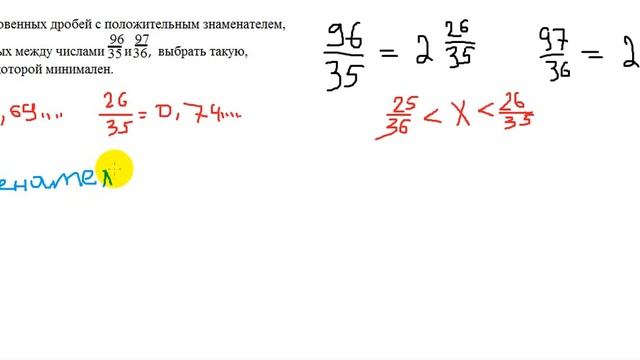 овенных дробей с положительным знаменателем,
ых между числами 96/35 и 97/36, выбрать такую,
которой минимален.
96/35 = 2 26/35
97/36 = 2
,69.... 26/35 = 0,74....
25/36 < X < 26/35
енамел